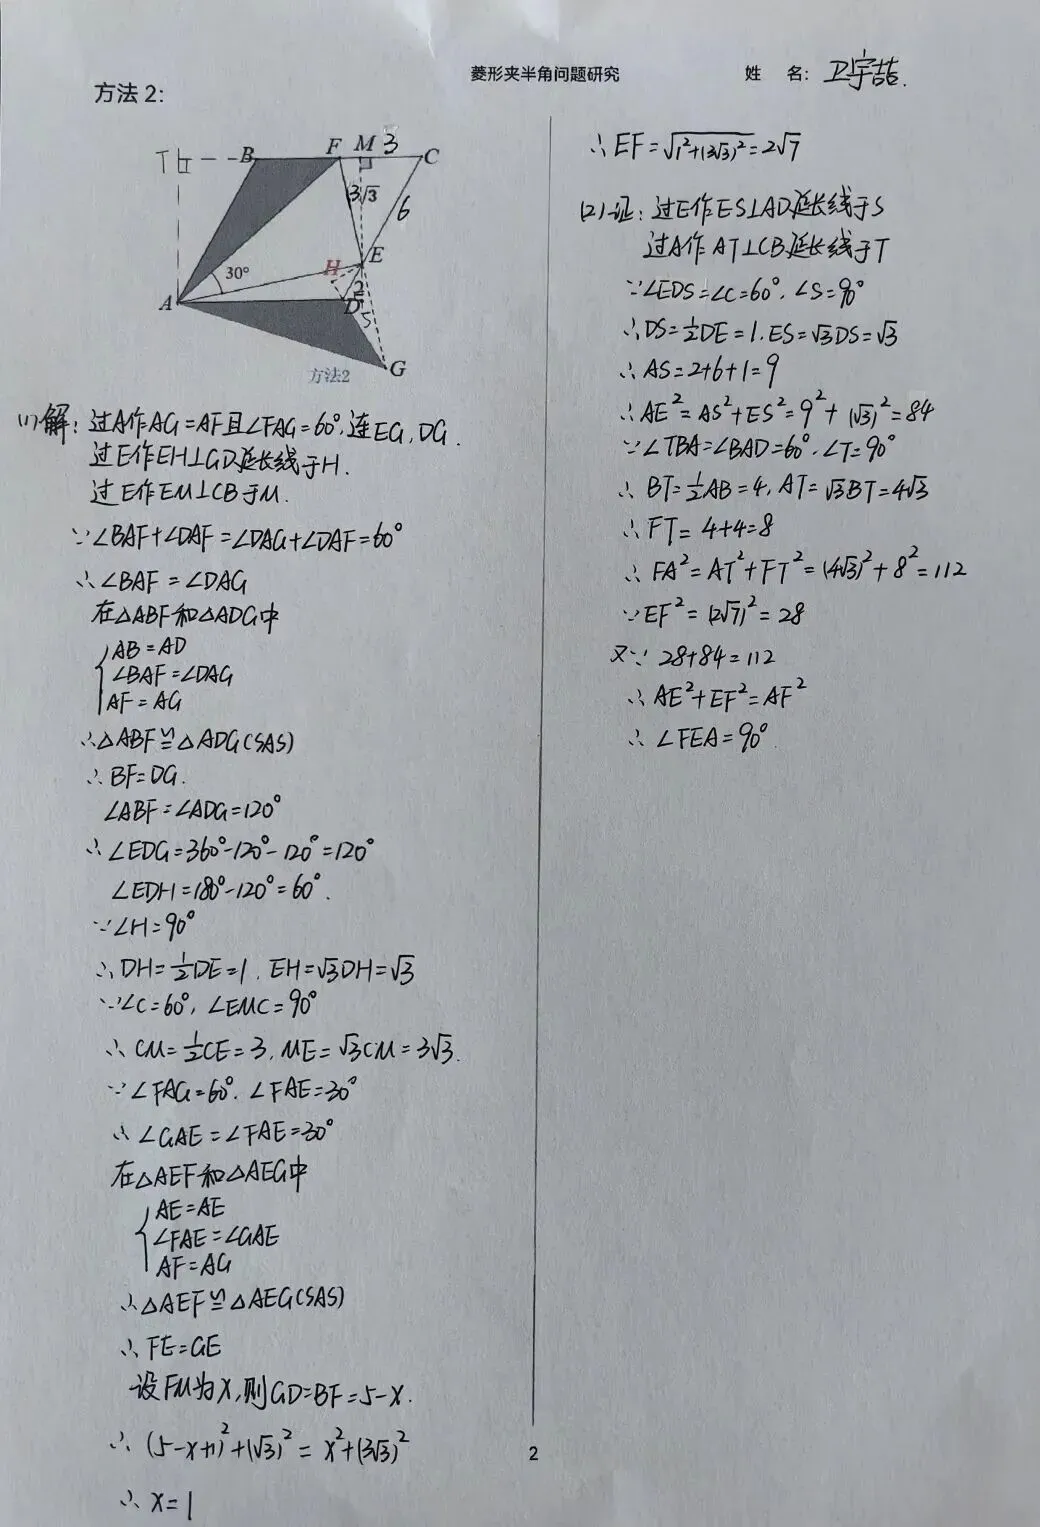 菱形夹半角问题研究
姓 名: 卫宇喆.
方法 2:
T
B
F
M
3
C
3√3
6
30°
H
E
A
2
D
S
G
方法2
(1)解: 过A作AG=AF且∠FAG=60°,连EG, DG.
过E作EH⊥GD延长线于H.
过E作EM⊥CB于M.
∵∠BAF+∠DAF=∠DAG+∠DAF=60°
∴∠BAF=∠DAG
在△ABF和△ADG中
AB=AD
∠BAF=∠DAG
AF=AG
∴△ABF≌△ADG(SAS)
∴BF=DG.
∠ABF=∠ADG=120°
∴∠EDG=360°-120°-120°=120°
∠EDH=180°-120°=60°.
∵∠H=90°
∴DH=½DE=1. EH=√3DH=√3
∵∠C=60°, ∠EMC=90°
∴CM=½CE=3, ME=√3CM=3√3.
∵∠FAG=60°. ∠FAE=30°
∴∠GAE=∠FAE=30°
在△AEF和△AEG中
AE=AE
∠FAE=∠GAE
AF=AG
∴△AEF≌△AEG(SAS)
∴FE=GE
设FM为x,则GD=BF=5-x.
∴(5-x+1)²+(√3)²=x²+(3√3)²
∴x=1
∴EF=√1²+(3√3)²=2√7
(2)证: 过E作ES⊥AD延长线于S
过A作AT⊥CB延长线于T
∵∠EDS=∠C=60°. ∠S=90°
∴DS=½DE=1. ES=√3DS=√3
∴AS=2+6+1=9
∴AE²=AS²+ES²=9²+(√3)²=84
∵∠TBA=∠BAD=60°. ∠T=90°
∴BT=½AB=4, AT=√3BT=4√3
∴FT=4+4=8
∴FA²=AT²+FT²=(4√3)²+8²=112
∵EF²=(2√7)²=28
又∵28+84=112
∴AE²+EF²=AF²
∴∠FEA=90°.
2